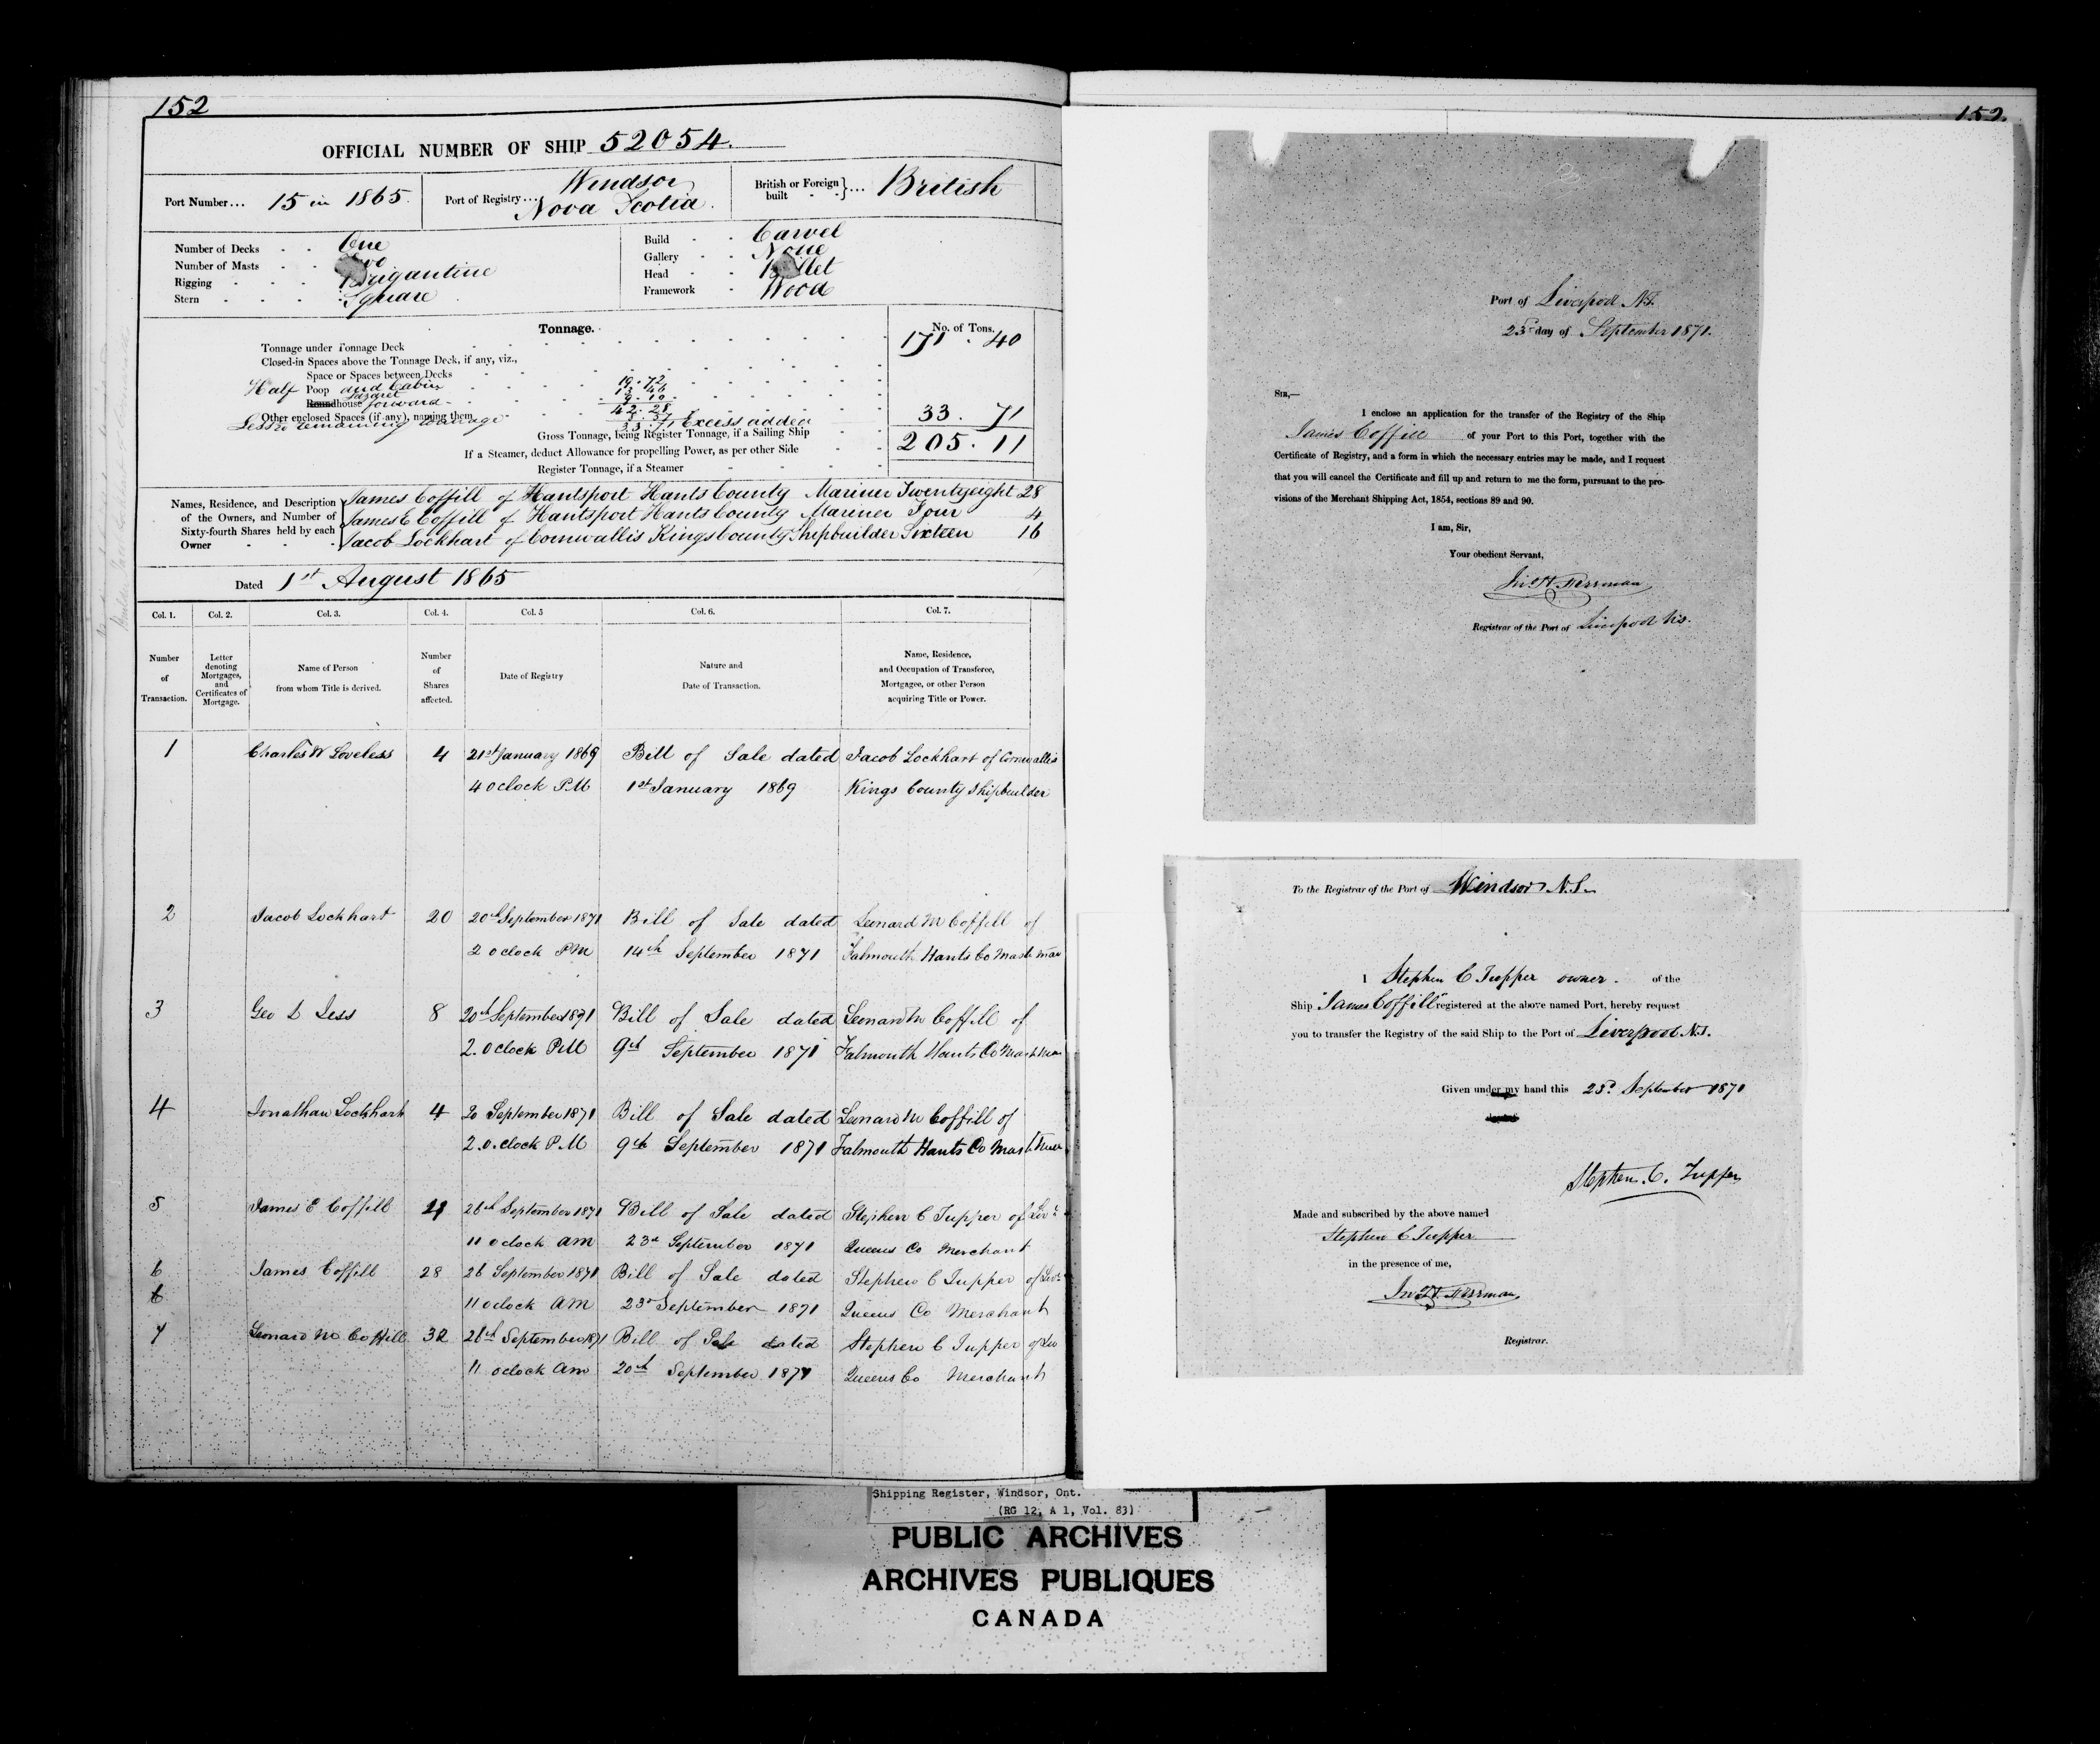 152
OFFICIAL NUMBER OF SHIP 52054.
Port Number... 15 in 1865. Port of Registry... Windsor Nova Scotia. British or Foreign built }... British
Number of Decks - - One
Number of Masts - -
Rigging - - - Brigantine
Stern - - - Square
Build - - Carvel
Gallery - - None
Head - -
Framework - Wood
Tonnage. No. of Tons.
Tonnage under Tonnage Deck 171 . 40
Closed-in Spaces above the Tonnage Deck, if any, viz.,
Space or Spaces between Decks
Half Poop and Cabin 19.72
Roundhouse forward
Other enclosed Spaces (if any), naming them 42.28
Less remaining tonnage 33.71 Excess added 33. 71
Gross Tonnage, being Register Tonnage, if a Sailing Ship 205. 11
If a Steamer, deduct Allowance for propelling Power, as per other Side
Register Tonnage, if a Steamer
Names, Residence, and Description of the Owners, and Number of Sixty-fourth Shares held by each Owner
James Coffill of Hantsport Hants County Mariner Twentyeight 28
James E Coffill of Hantsport Hants County Mariner Four 4
Jacob Lockhart of Cornwallis Kings County Shipbuilder Sixteen 16
Dated 1st August 1865
Col. 1. Col. 2. Col. 3. Col. 4. Col. 5 Col. 6. Col. 7.
Number of Transaction.
Letter denoting Mortgages, and Certificates of Mortgage.
Name of Person from whom Title is derived.
Number of Shares affected.
Date of Registry
Nature and Date of Transaction.
Name, Residence, and Occupation of Transferee, Mortgagee, or other Person acquiring Title or Power.
1 Charles W Loveless 4 21st January 1869 Bill of Sale dated Jacob Lockhart of Cornwallis
4 oclock P.M 1st January 1869 Kings County Shipbuilder
2 Jacob Lockhart 20 20th September 1871 Bill of Sale dated Leonard M Coffill of
2 oclock PM 14th September 1871 Falmouth Hants Co
3 Geo 8 20th September 1871 Bill of Sale dated Leonard M Coffill of
2. oclock P.M 9th September 1871 Falmouth Hants Co
4 Jonathan Lockhart 4 20 September 1871 Bill of Sale dated Leonard M Coffill of
2. o.clock P.M 9th September 1871 Falmouth Hants Co
5 James E Coffill 4 26th September 1871 Bill of Sale dated Stephen C Tupper of
11 oclock AM 23d September 1871 Queens Co Merchant
6 James Coffill 28 26 September 1871 Bill of Sale dated Stephen C Tupper of
6
11 oclock AM 23d September 1871 Queens Co Merchant
7 Leonard M Coffill 32 26th September 1871 Bill of Sale dated Stephen C Tupper of
11 oclock Am 20th September 1871 Queens Co Merchant
152.
Port of Liverpool N.S.
23d day of September 1871.
SIR,—
I enclose an application for the transfer of the Registry of the Ship
James Coffill of your Port to this Port, together with the
Certificate of Registry, and a form in which the necessary entries may be made, and I request
that you will cancel the Certificate and fill up and return to me the form, pursuant to the pro-
visions of the Merchant Shipping Act, 1854, sections 89 and 90.
I am, Sir,
Your obedient Servant,
Registrar of the Port of Liverpool N.S.
To the Registrar of the Port of Windsor N.S.
I Stephen C Tupper owner. of the
Ship "James Coffill" registered at the above named Port, hereby request
you to transfer the Registry of the said Ship to the Port of Liverpool N.S.
Given under my hand this 23d September 1871
Stephen C. Tupper
Made and subscribed by the above named
Stephen C Tupper
in the presence of me,
Registrar.
Shipping Register, Windsor, Ont.
(RG 12, A 1, Vol. 83)
PUBLIC ARCHIVES
ARCHIVES PUBLIQUES
CANADA